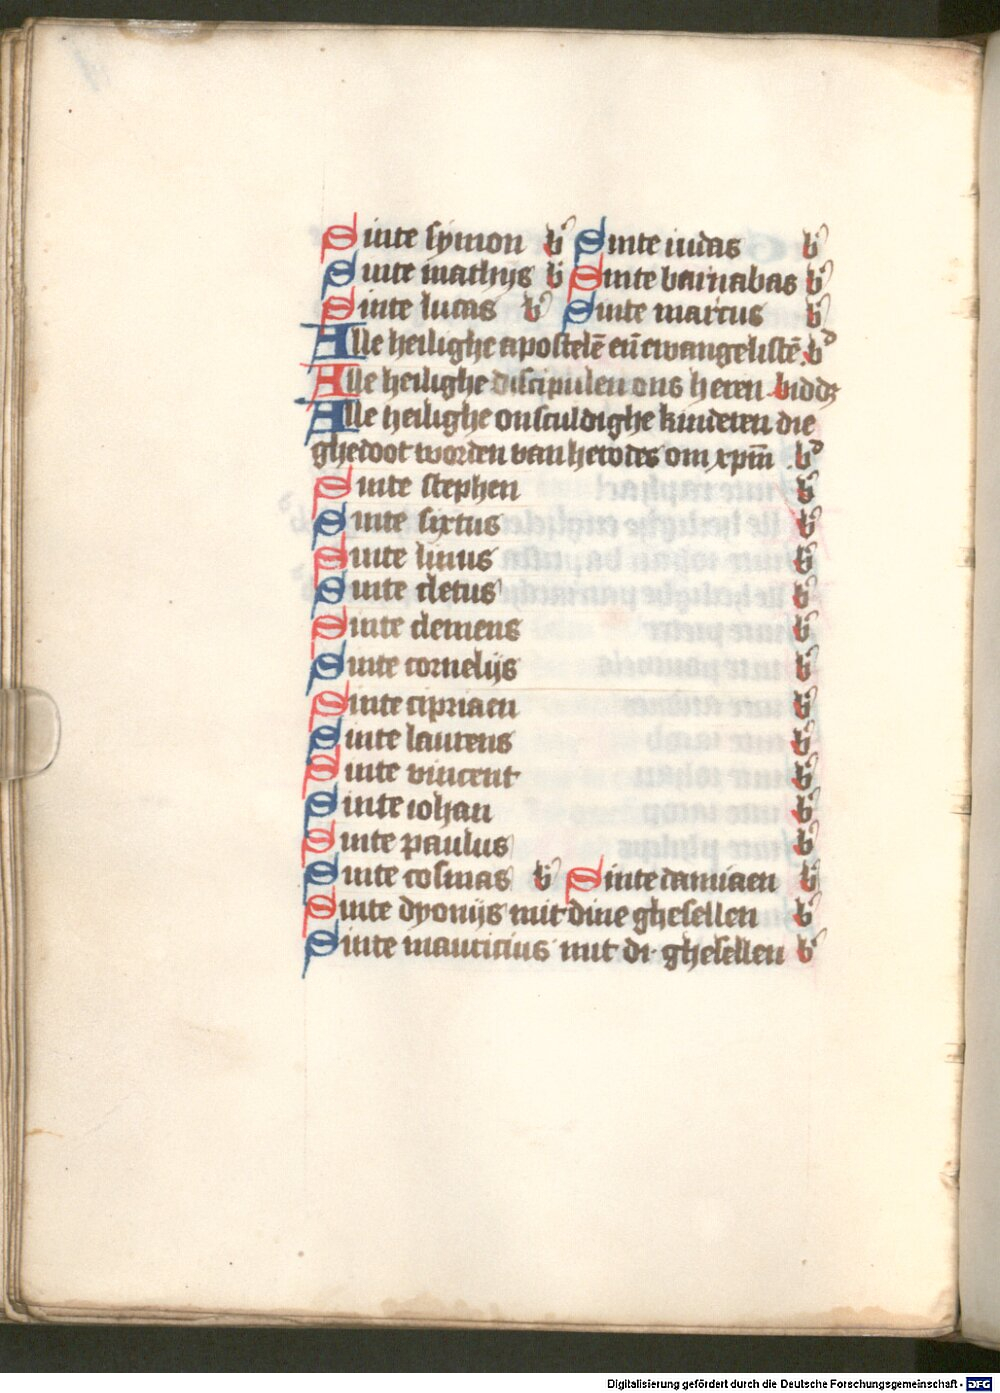 Sinte symon b Sinte iudas b
Sinte mathijs b Sinte barnabas b
Sinte lucas b Sinte marcus b
Alle heilighe apostelē eñ ewangelistē. b
Alle heilighe discipulen ons heren bidd
Alle heilighe onsculdighe kinderen die
ghedoot worden van herodes om xpm̄ . b
Sinte stephen b
Sinte sixtus b
Sinte linus b
Sinte cletus b
Sinte clemens b
Sinte cornelijs b
Sinte cipriaen b
Sinte laurens b
Sinte vincent b
Sinte iohan b
Sinte paulus b
Sinte cosmas b Sinte damiaen b
Sinte dyonijs mit dine ghesellen b
Sinte mauricius mit di. ghesellen b
Digitalisierung gefördert durch die Deutsche Forschungsgemeinschaft - DFG